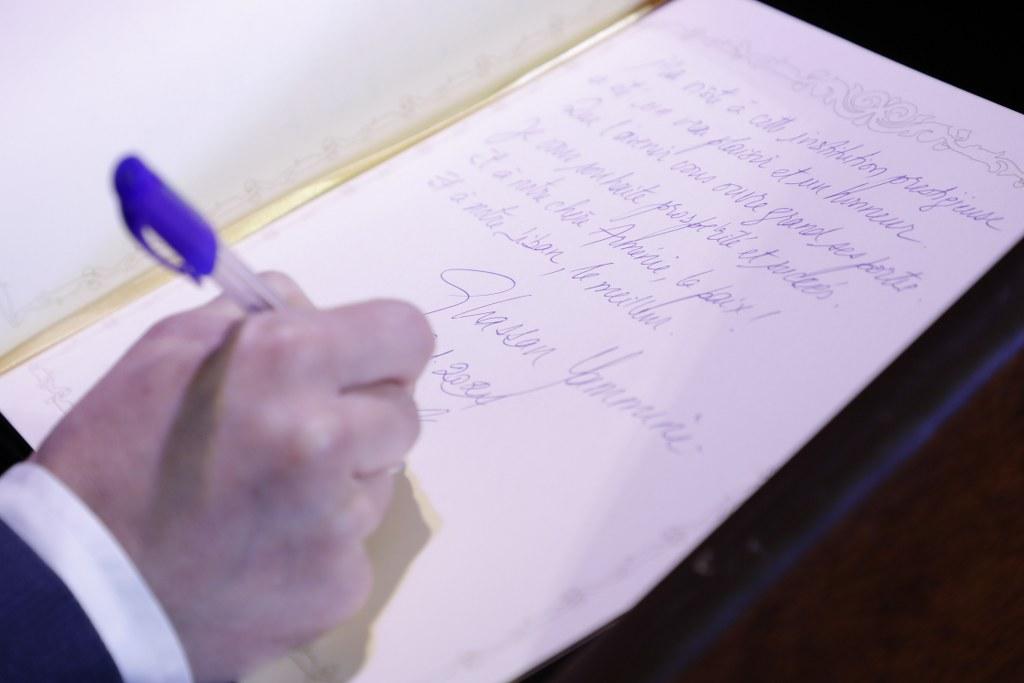 Ma visite à cette institution prestigieuse
a été un vrai plaisir et un honneur.
Que l'avenir vous ouvre grand ses portes
Je vous souhaite prospérité et succès.
Et à notre chère Arménie, la paix!
Et à notre Liban, le meilleur.
Ghassan Yammine
2024